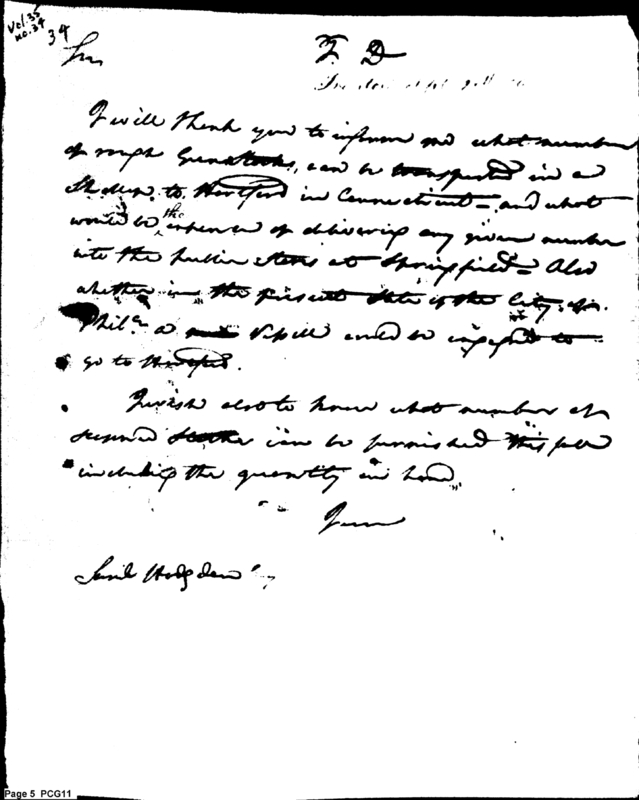 Vol. 35
no. 34
34
T. D
Sir
I will thank you to inform me what number
of rough Gunstocks, can be transported in a
Shallop to Hartford in Connecticut – and what
would be the expence of delivering any given number
into the public stores at Springfield – Also
whether in the present state of the City of
Philaa. a Vessell could be engaged to
go to Hartford.
I wish also to know what number of
can be furnished this fall
including the quantity on hand
Saml Hodgdon
Page 5 PCG11